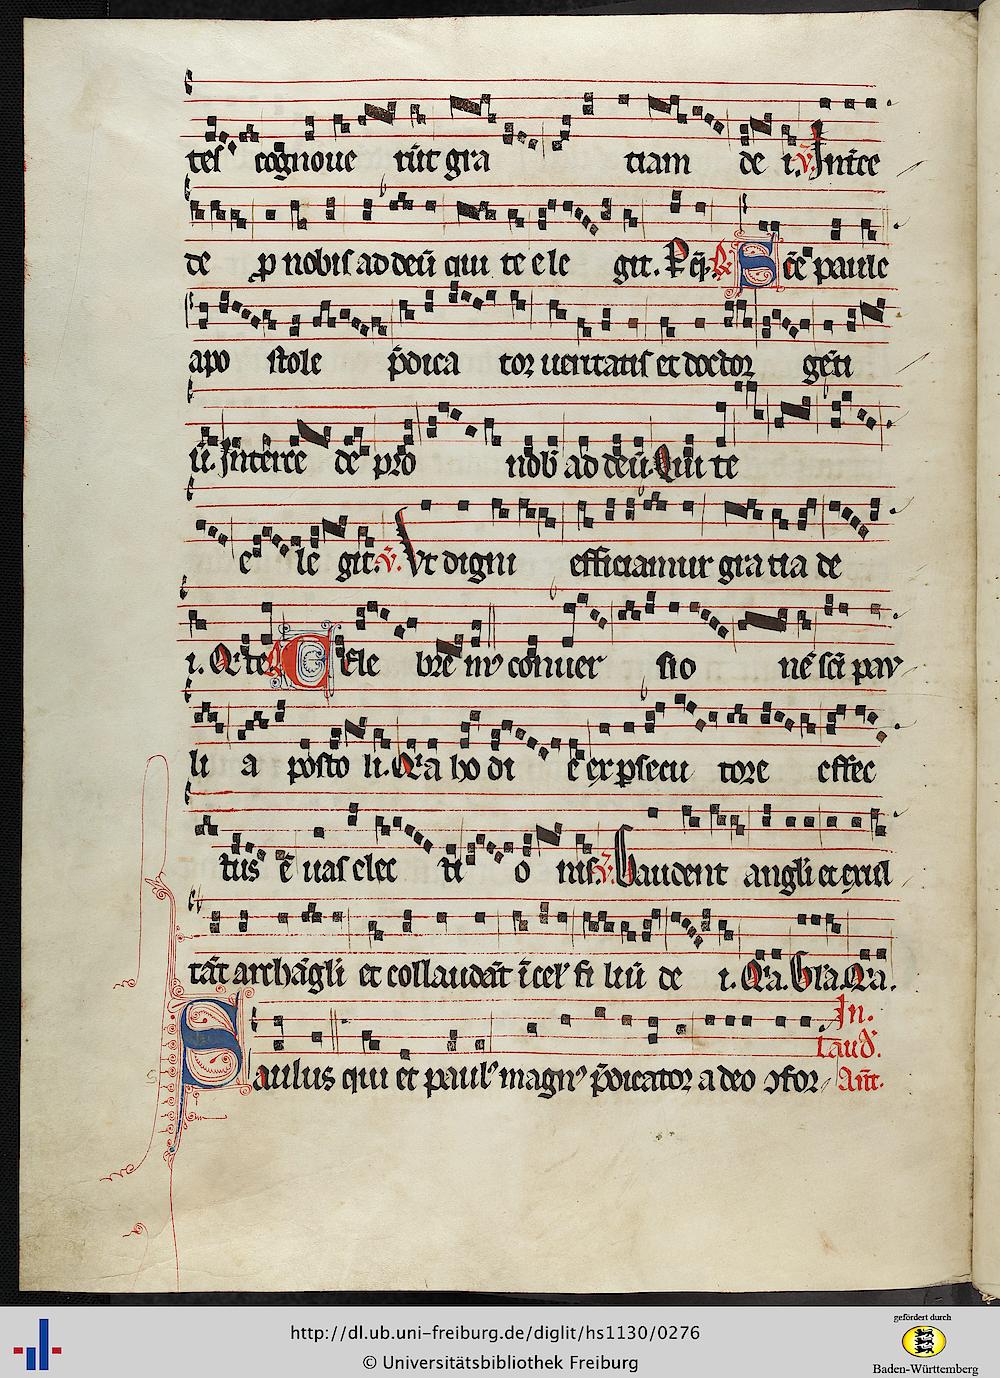 tes cognoue rūt gra tiam de i. v̄. Int̄ce
de ꝓ nobis ad deū qui te ele git. P eq̄. R̄ Sc̄e paule
apo stole p̄dica tor ueritatis et doctor gēti
ū. Interce de pro nob ad deū Qui te
e le git. v̄. Ut digni efficiamur gratia de
i. Q te R̄ Cele bremꝰ conuer sio nē sc̄i pau
li a posto li. Q̄a ho di e ex ꝑsecu tore effec
tus ē uas elec ti o nis. v̄. Gaudent angli et exul
tāt archāgli et collaudāt ī cel fi liū de i. Q̄a. Gl̄a. Q̄a.
In.
Laud.
Saulus qui et paulꝰ magnꝰ p̄dicator a deo ꝯfor Añt.
http://dl.ub.uni-freiburg.de/diglit/hs1130/0276
© Universitätsbibliothek Freiburg
gefördert durch
Baden-Württemberg